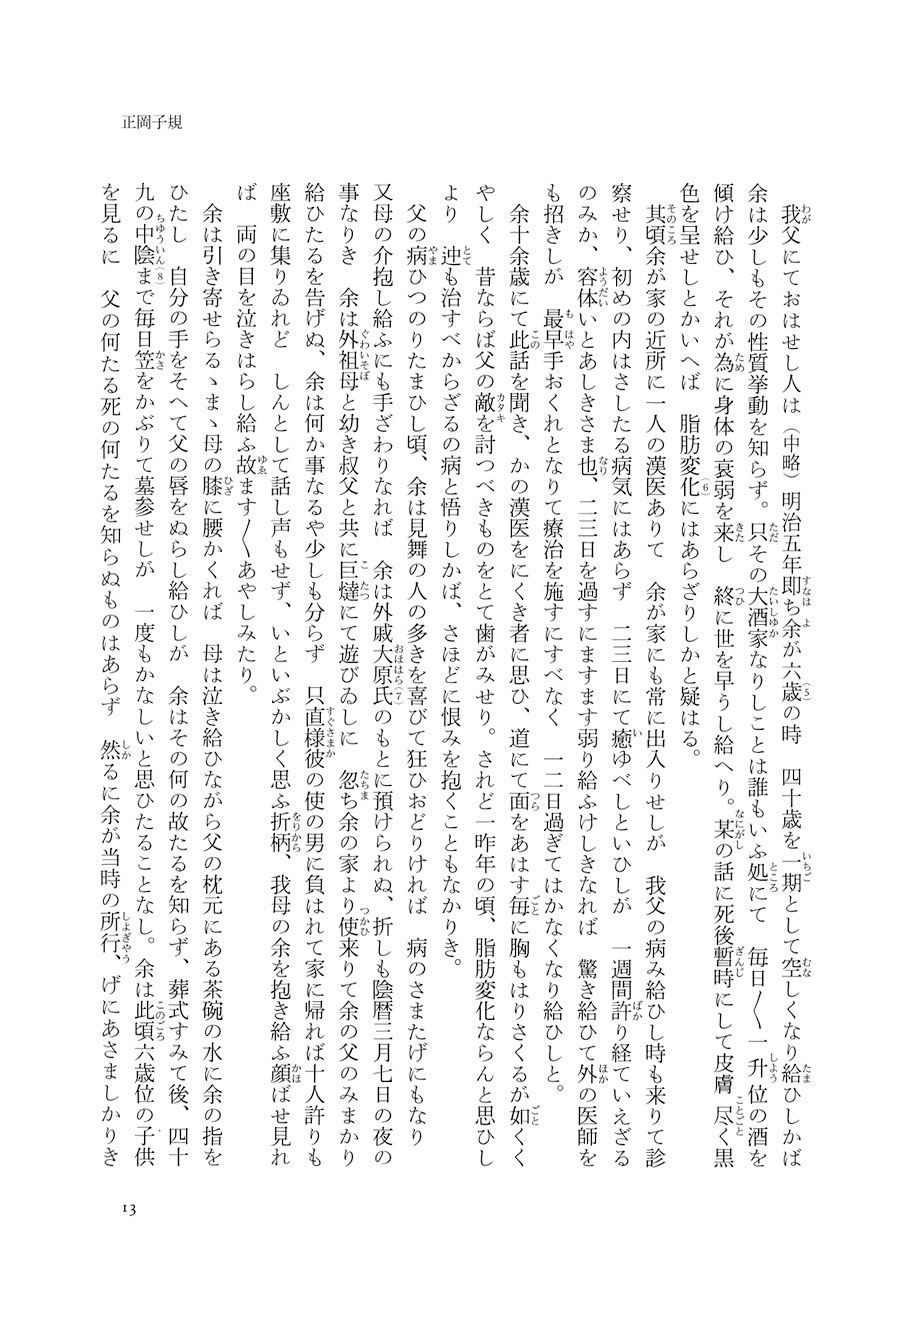 正岡子規
我父にておはせし人は（中略）明治五年即ち余が六歳(5)の時　四十歳を一期として空しくなり給ひしかば
余は少しもその性質挙動を知らず。只その大酒家なりしことは誰もいふ処にて　毎日〳〵一升位の酒を
傾け給ひ、それが為に身体の衰弱を来し　終に世を早うし給へり。某の話に死後暫時にして皮膚　尽く黒
色を呈せしとかいへば　脂肪変化(6)にはあらざりしかと疑はる。
其頃余が家の近所に一人の漢医ありて　余が家にも常に出入りせしが　我父の病み給ひし時も来りて診
察せり、初めの内はさしたる病気にはあらず　二三日にて癒ゆべしといひしが　一週間許り経ていえざる
のみか、容体いとあしきさま也、二三日を過すにますます弱り給ふけしきなれば　驚き給ひて外の医師を
も招きしが　最早手おくれとなりて療治を施すにすべなく　一二日過ぎてはかなくなり給ひしと。
余十余歳にて此話を聞き、かの漢医をにくき者に思ひ、道にて面をあはす毎に胸もはりさくるが如くく
やしく　昔ならば父の敵を討つべきものをとて歯がみせり。されど一昨年の頃、脂肪変化ならんと思ひし
より　迚も治すべからざるの病と悟りしかば、さほどに恨みを抱くこともなかりき。
父の病ひつのりたまひし頃、余は見舞の人の多きを喜びて狂ひおどりければ　病のさまたげにもなり
又母の介抱し給ふにも手ざわりなれば　余は外戚大原氏(7)のもとに預けられぬ、折しも陰暦三月七日の夜の
事なりき　余は外祖母と幼き叔父と共に巨燵にて遊びゐしに　忽ち余の家より使来りて余の父のみまかり
給ひたるを告げぬ、余は何か事なるや少しも分らず　只直様彼の使の男に負はれて家に帰れば十人許りも
座敷に集りゐれど　しんとして話し声もせず、いといぶかしく思ふ折柄、我母の余を抱き給ふ顔ばせ見れ
ば　両の目を泣きはらし給ふ故ます〳〵あやしみたり。
余は引き寄せらるゝまゝ母の膝に腰かくれば　母は泣き給ひながら父の枕元にある茶碗の水に余の指を
ひたし　自分の手をそへて父の唇をぬらし給ひしが　余はその何の故たるを知らず、葬式すみて後、四十
九の中陰(8)まで毎日笠をかぶりて墓参せしが　一度もかなしいと思ひたることなし。余は此頃六歳位の子供
を見るに　父の何たる死の何たるを知らぬものはあらず　然るに余が当時の所行、げにあさましかりき
13